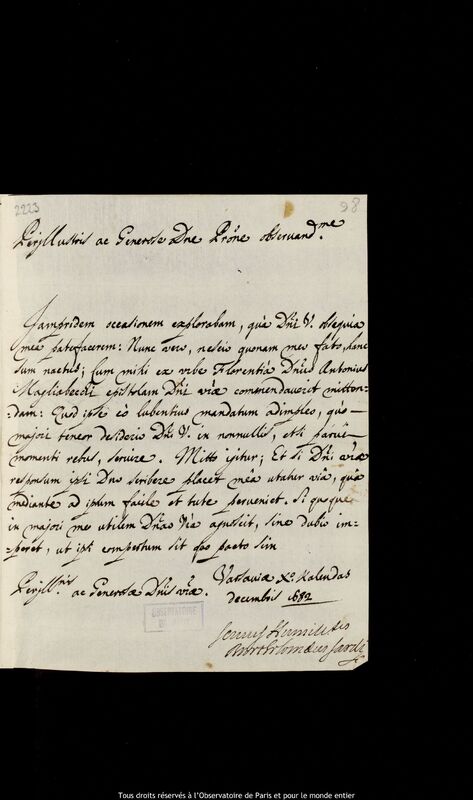 2223
98
Peryllustris ac Generose Dne Prône observand.me
Jampridem occasionem explorabam, quâ Dni V. obsequia
mea patefacerem: Nunc vero, nescio quonam meo fato, hanc
sum nactus; Cum mihi ex urbe Florentiâ Dnus Antonius
Magliabecchi epistolam Dni vrae commendaverit mitten-
:dam: Quod ipse eò lubentius mandatum adimpleo, quo
majori teneor desiderio Dni V. in nonnullis, etsi parui
momenti rebus, seruire. Mitto igitur; Et si Dni vrae
responsum ipsi Dno scribere placet meâ utatur viâ, quâ
mediante ad ipsum facile et tute perveniet. Si quoque
in majori me utilem Dnao Vra agnoscit, sine dubio im-
:peret, ut ipsi compertum sit quo pacto sim
Peryll.ris ac Generosae Dnis vrae. Varsaviae X.o Kalendas
decembris 1682
OBSERVATOIRE
Servus Humillimus
Bartholomaeus Sardi
Tous droits réservés à l'Observatoire de Paris et pour le monde entier